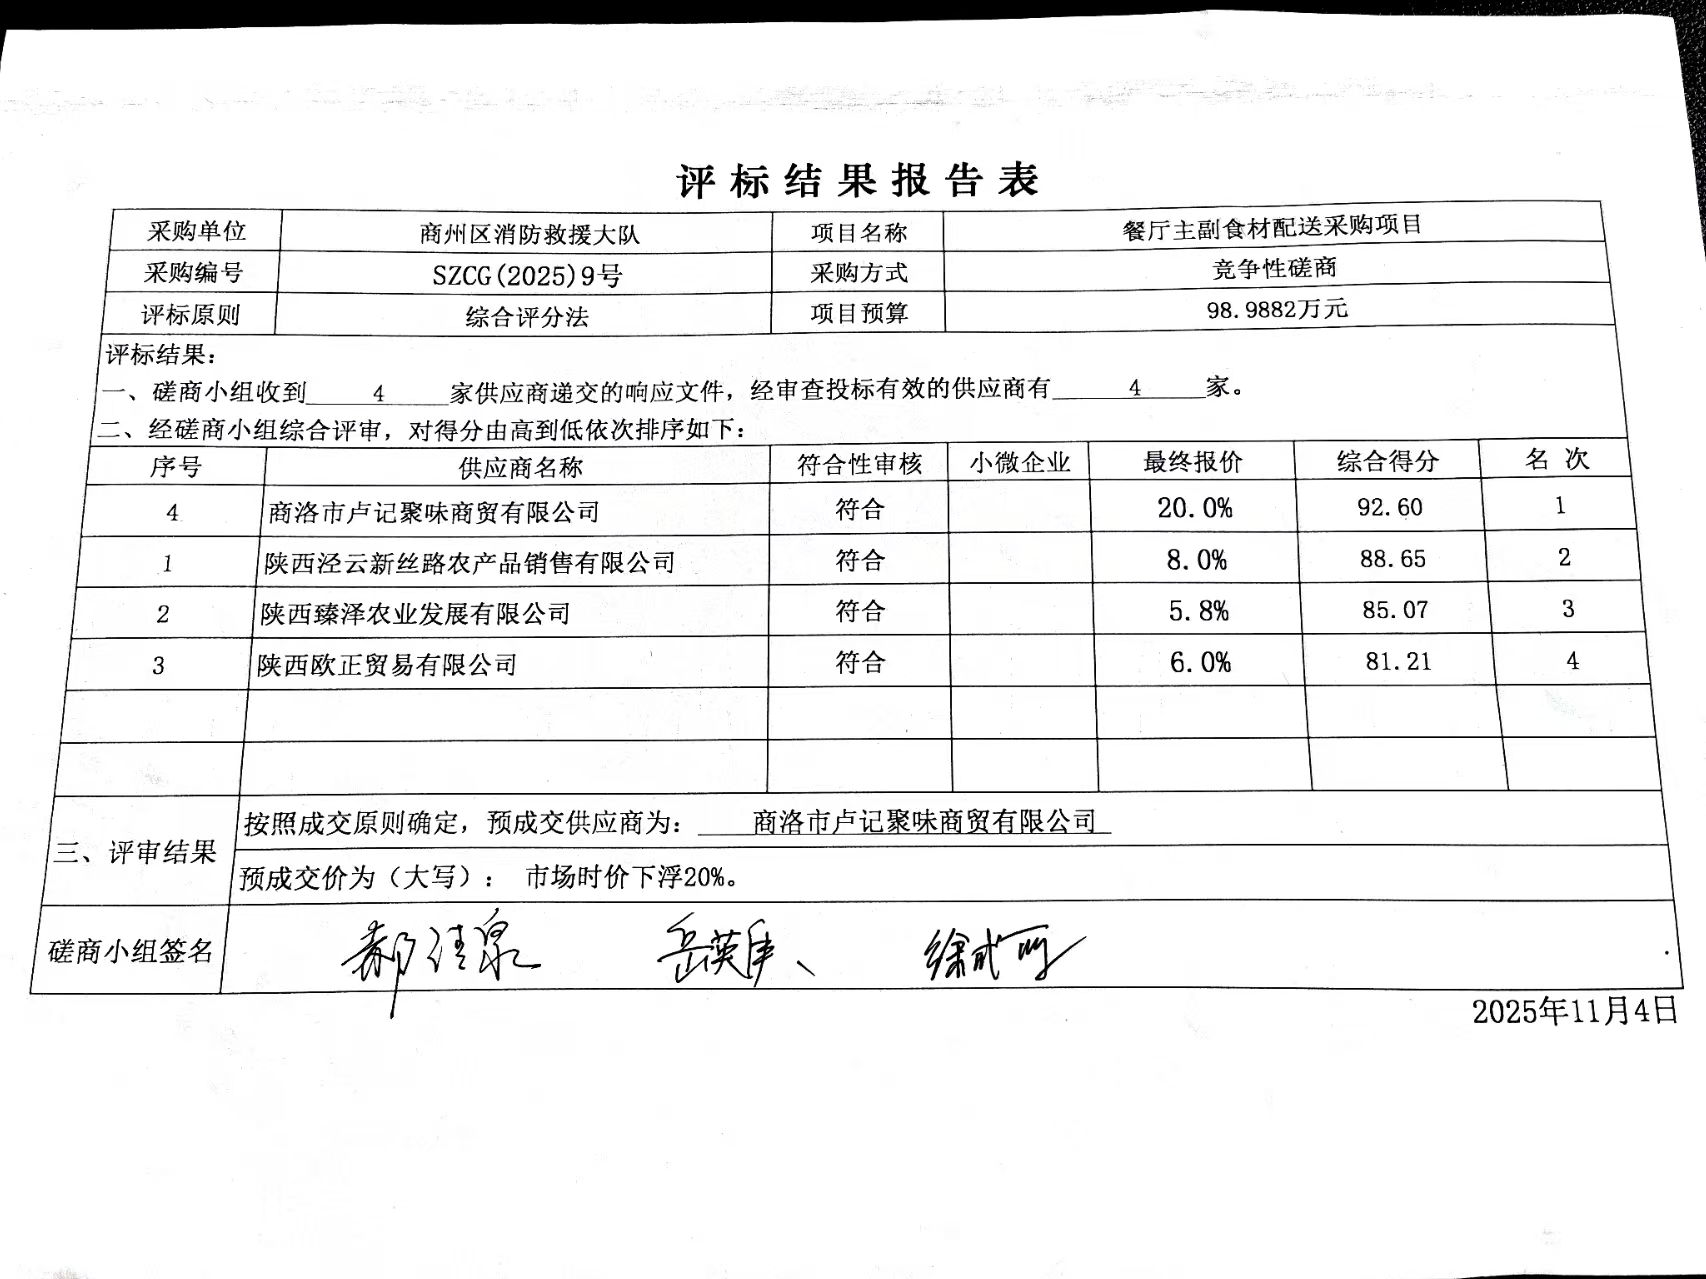 评标结果报告表
采购单位 商州区消防救援大队 项目名称 餐厅主副食材配送采购项目
采购编号 SZCG(2025)9号 采购方式 竞争性磋商
评标原则 综合评分法 项目预算 98.9882万元
评标结果：
一、磋商小组收到 4 家供应商递交的响应文件，经审查投标有效的供应商有 4 家。
二、经磋商小组综合评审，对得分由高到低依次排序如下：
序号 供应商名称 符合性审核 小微企业 最终报价 综合得分 名 次
4 商洛市卢记聚味商贸有限公司 符合 20.0% 92.60 1
1 陕西泾云新丝路农产品销售有限公司 符合 8.0% 88.65 2
2 陕西臻泽农业发展有限公司 符合 5.8% 85.07 3
3 陕西欧正贸易有限公司 符合 6.0% 81.21 4
三、评审结果 按照成交原则确定，预成交供应商为： 商洛市卢记聚味商贸有限公司
预成交价为（大写）： 市场时价下浮20%。
磋商小组签名
2025年11月4日